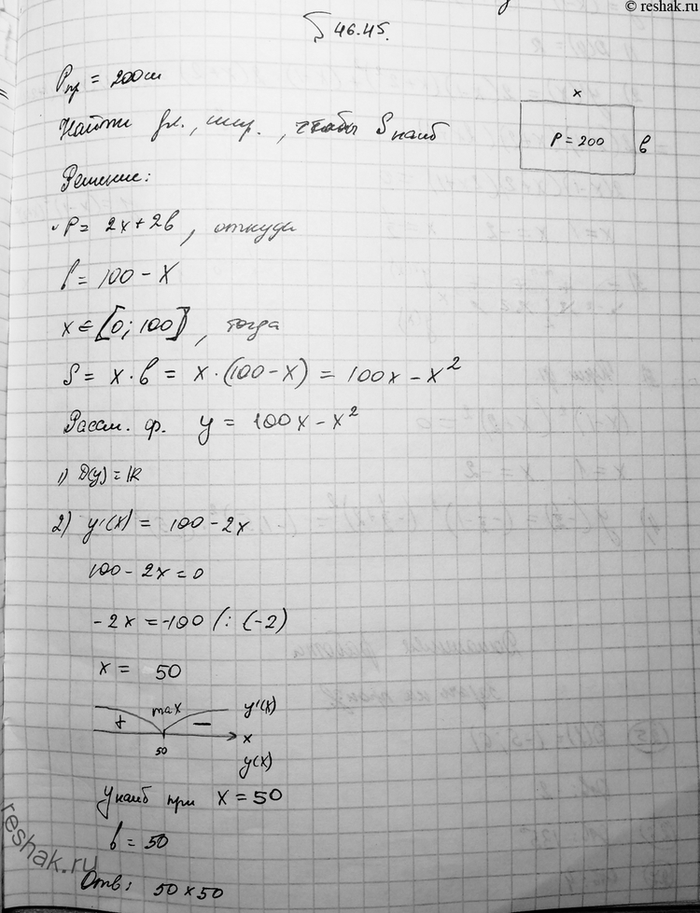 © reshak.ru
§ 46.45.
Pпр = 200 см
Найти дл., шир., чтобы S наиб
x
P = 200
b
Решение:
P = 2x + 2b, откуда
b = 100 - x
x ∈ [0; 100], тогда
S = x · b = x · (100 - x) = 100x - x²
Рассм. ф. y = 100x - x²
1) D(y) = ℝ
2) y'(x) = 100 - 2x
100 - 2x = 0
-2x = -100 /: (-2)
x = 50
+ max - y'(x)
50 x
y(x)
y наиб при x = 50
b = 50
reshak.ru
Отв: 50 x 50